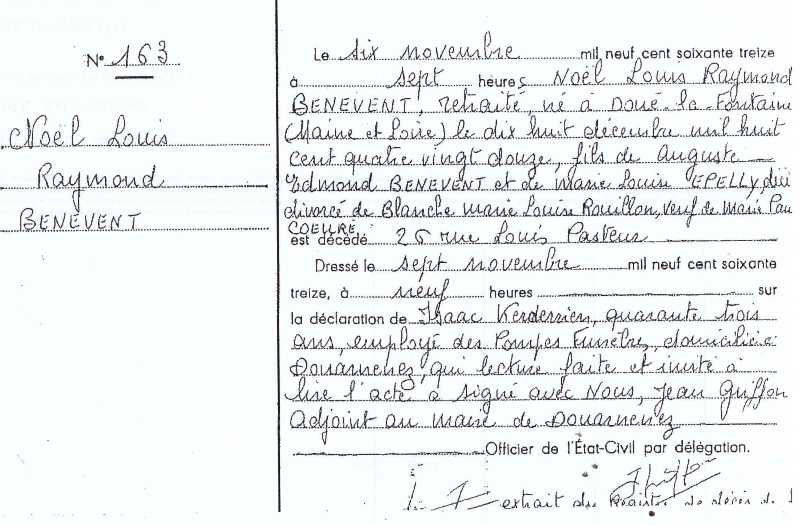 N° 163
Noël Louis
Raymond
BENEVENT
Le six novembre mil neuf cent soixante treize
à sept heures Noël Louis Raymond
BENEVENT, retraité, né à Doué-la-Fontaine
(Maine et Loire) le dix huit décembre mil huit
cent quatre vingt douze, fils de Auguste
Edmond BENEVENT et de Marie Louise EPELLY,
divorcé de Blanche Marie Louise Rouillon, veuf de Marie Pau
COEURE
est décédé 26 rue Louis Pasteur
Dressé le sept novembre mil neuf cent soixante
treize, à neuf heures sur
la déclaration de Isaac Kerdersien, quarante trois
ans, employé des Pompes Funèbre, domicilié
Douarnenez, qui lecture faite et invité à
lire l'acte a signé avec Nous, Jean Griffon
Adjoint au maire de Douarnenez
Officier de l'État-Civil par délégation.
extrait du Registre de décès de